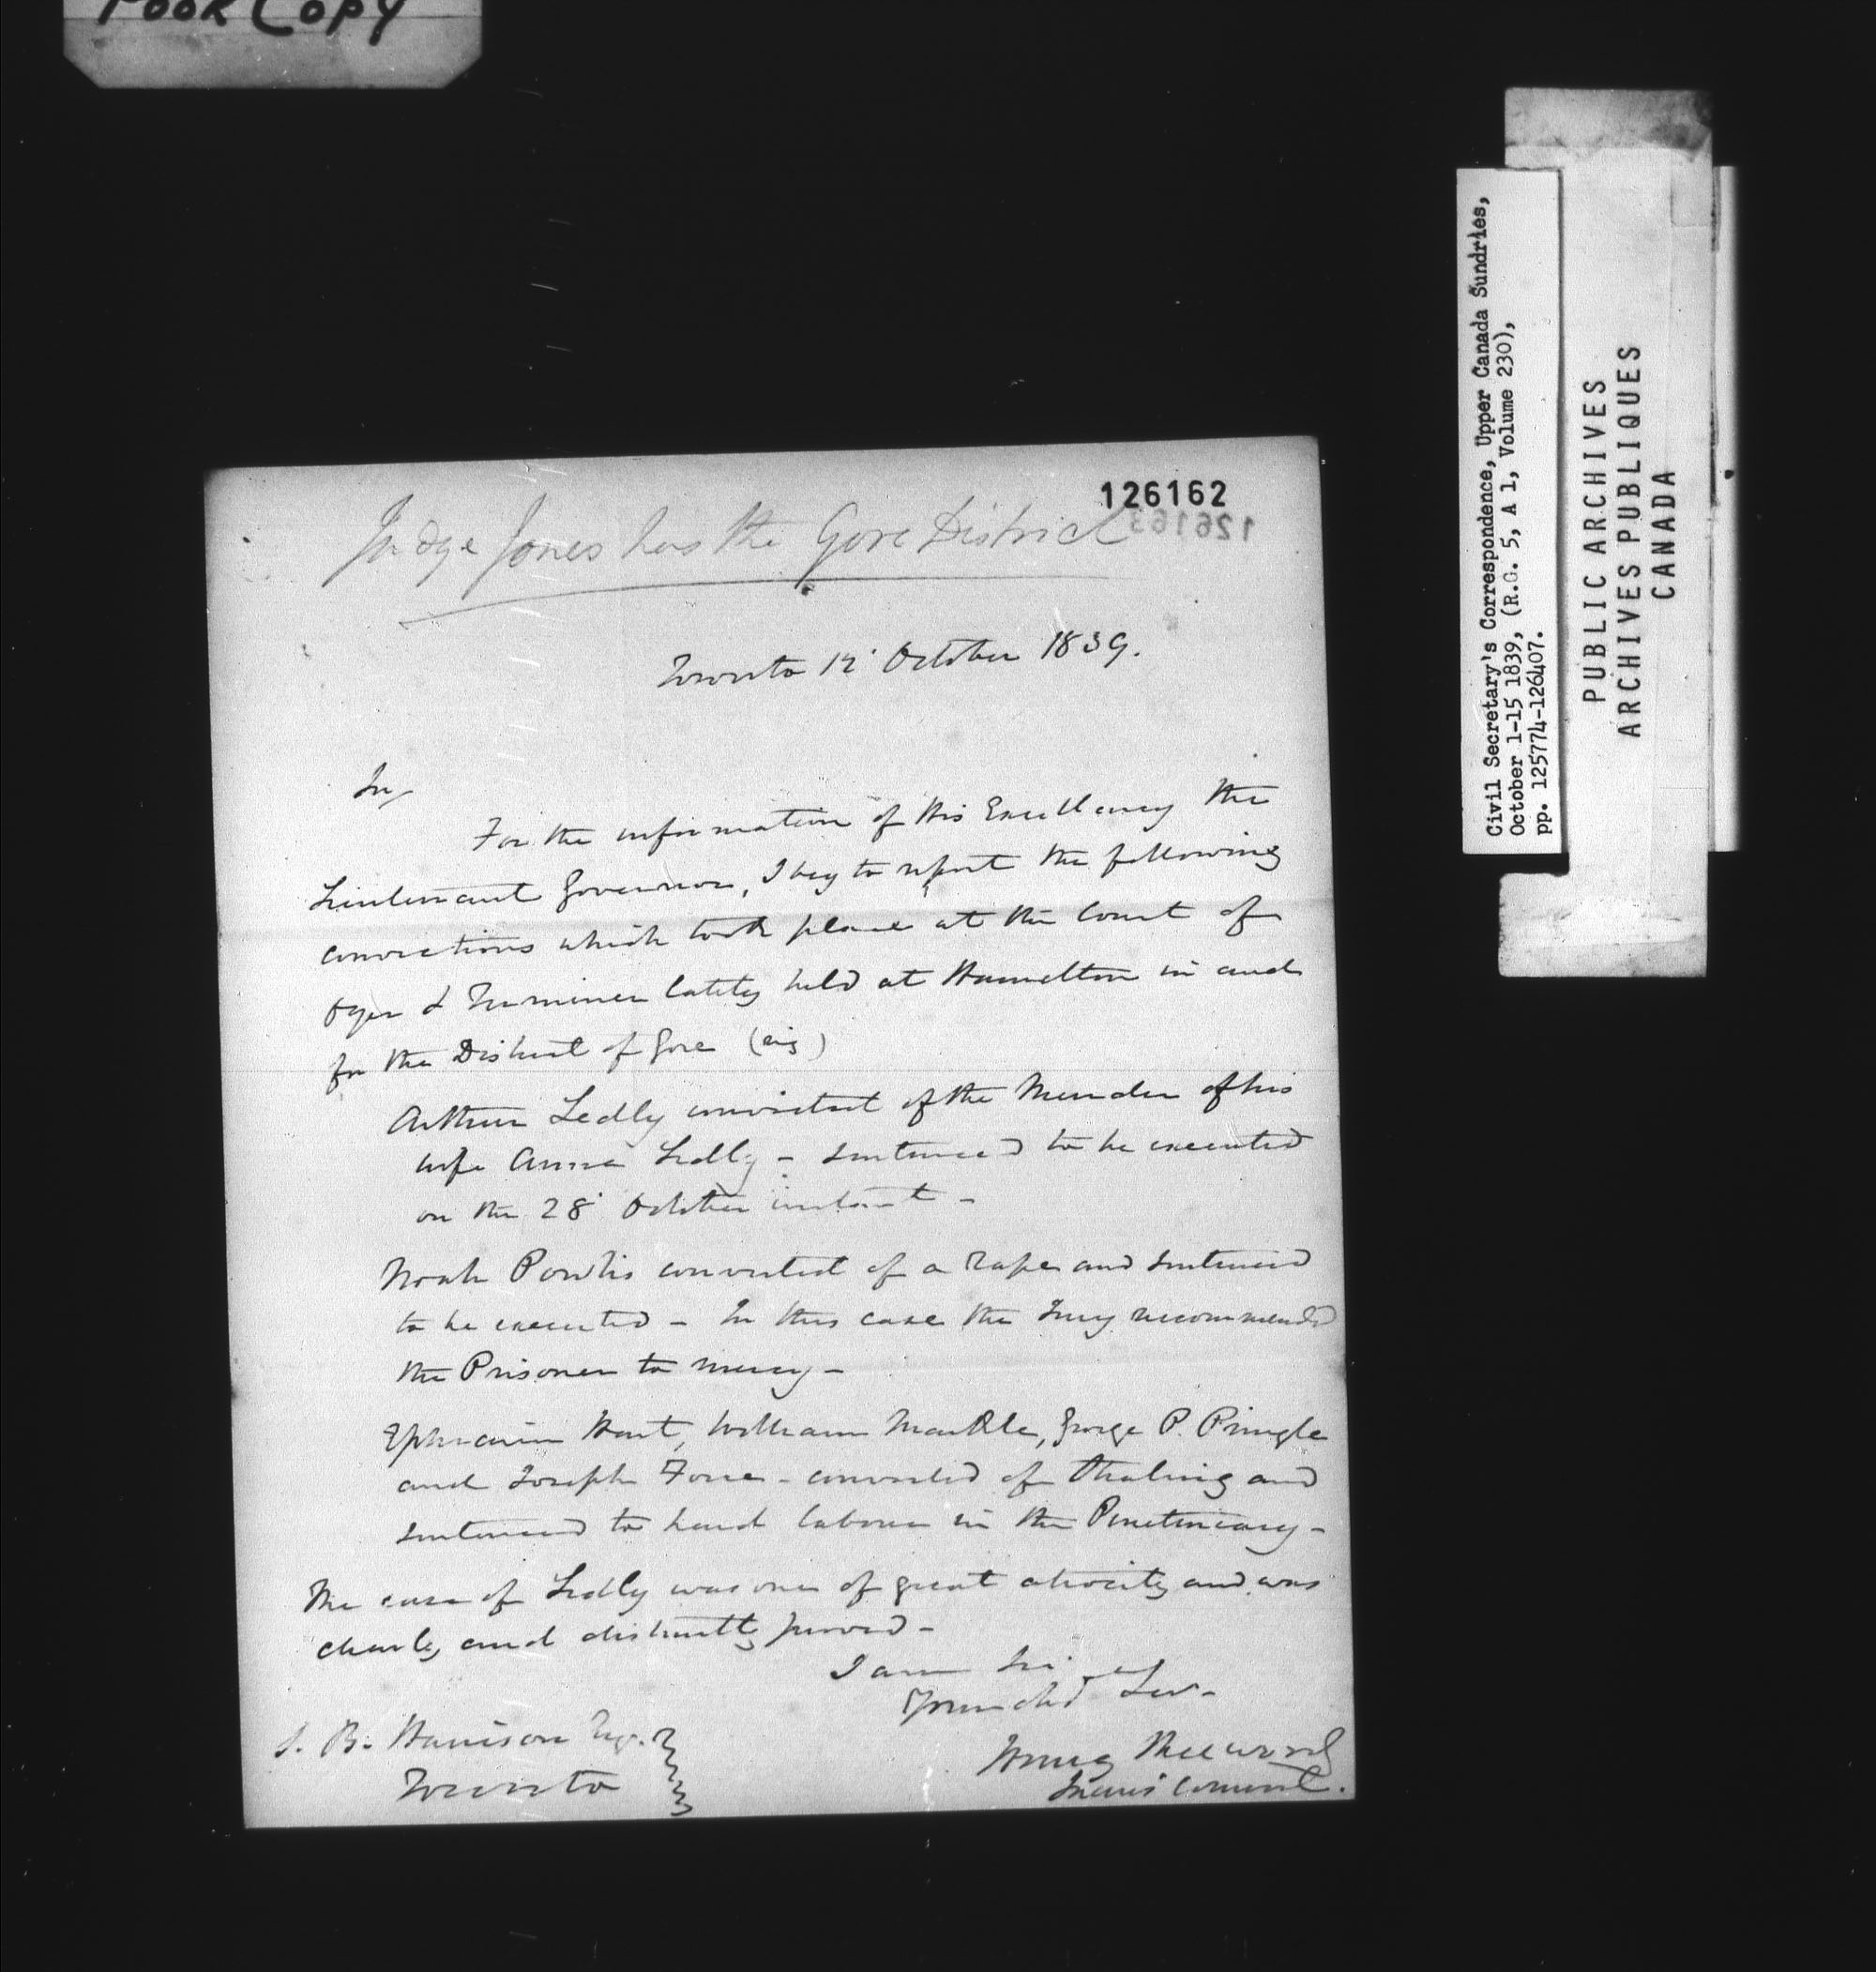 Poor Copy
126162
126163
Judge Jones has the Gore District
Toronto 12 October 1839.
Sir,
For the information of His Excellency the
Lieutenant Governor, I beg to report the following
convictions which took place at the Court of
Oyer & Terminer lately held at Hamilton in and
for the District of Gore (viz)
Arthur Ledly convicted of the Murder of his
wife Anna Ledly - sentenced to be executed
on the 28 October instant -
Noah Powlis convicted of a Rape and sentenced
to be executed - In this case the Jury recommended
the Prisoner to mercy -
Ephraim Hart, William Markle, George P. Pringle
and Joseph Force - convicted of Stealing and
sentenced to hard labour in the Penetenciary -
The case of Ledly was one of great atrocity and was
clearly and distinctly proved -
I am Sir
Your obt Ser-
S. B. Harrison Esq.
Toronto
Henry Sherwood
Queens Counsel.
Civil Secretary's Correspondence, Upper Canada Sundries,
October 1-15 1839, (R.G. 5, A 1, Volume 230),
pp. 125774-126407.
PUBLIC ARCHIVES
ARCHIVES PUBLIQUES
CANADA